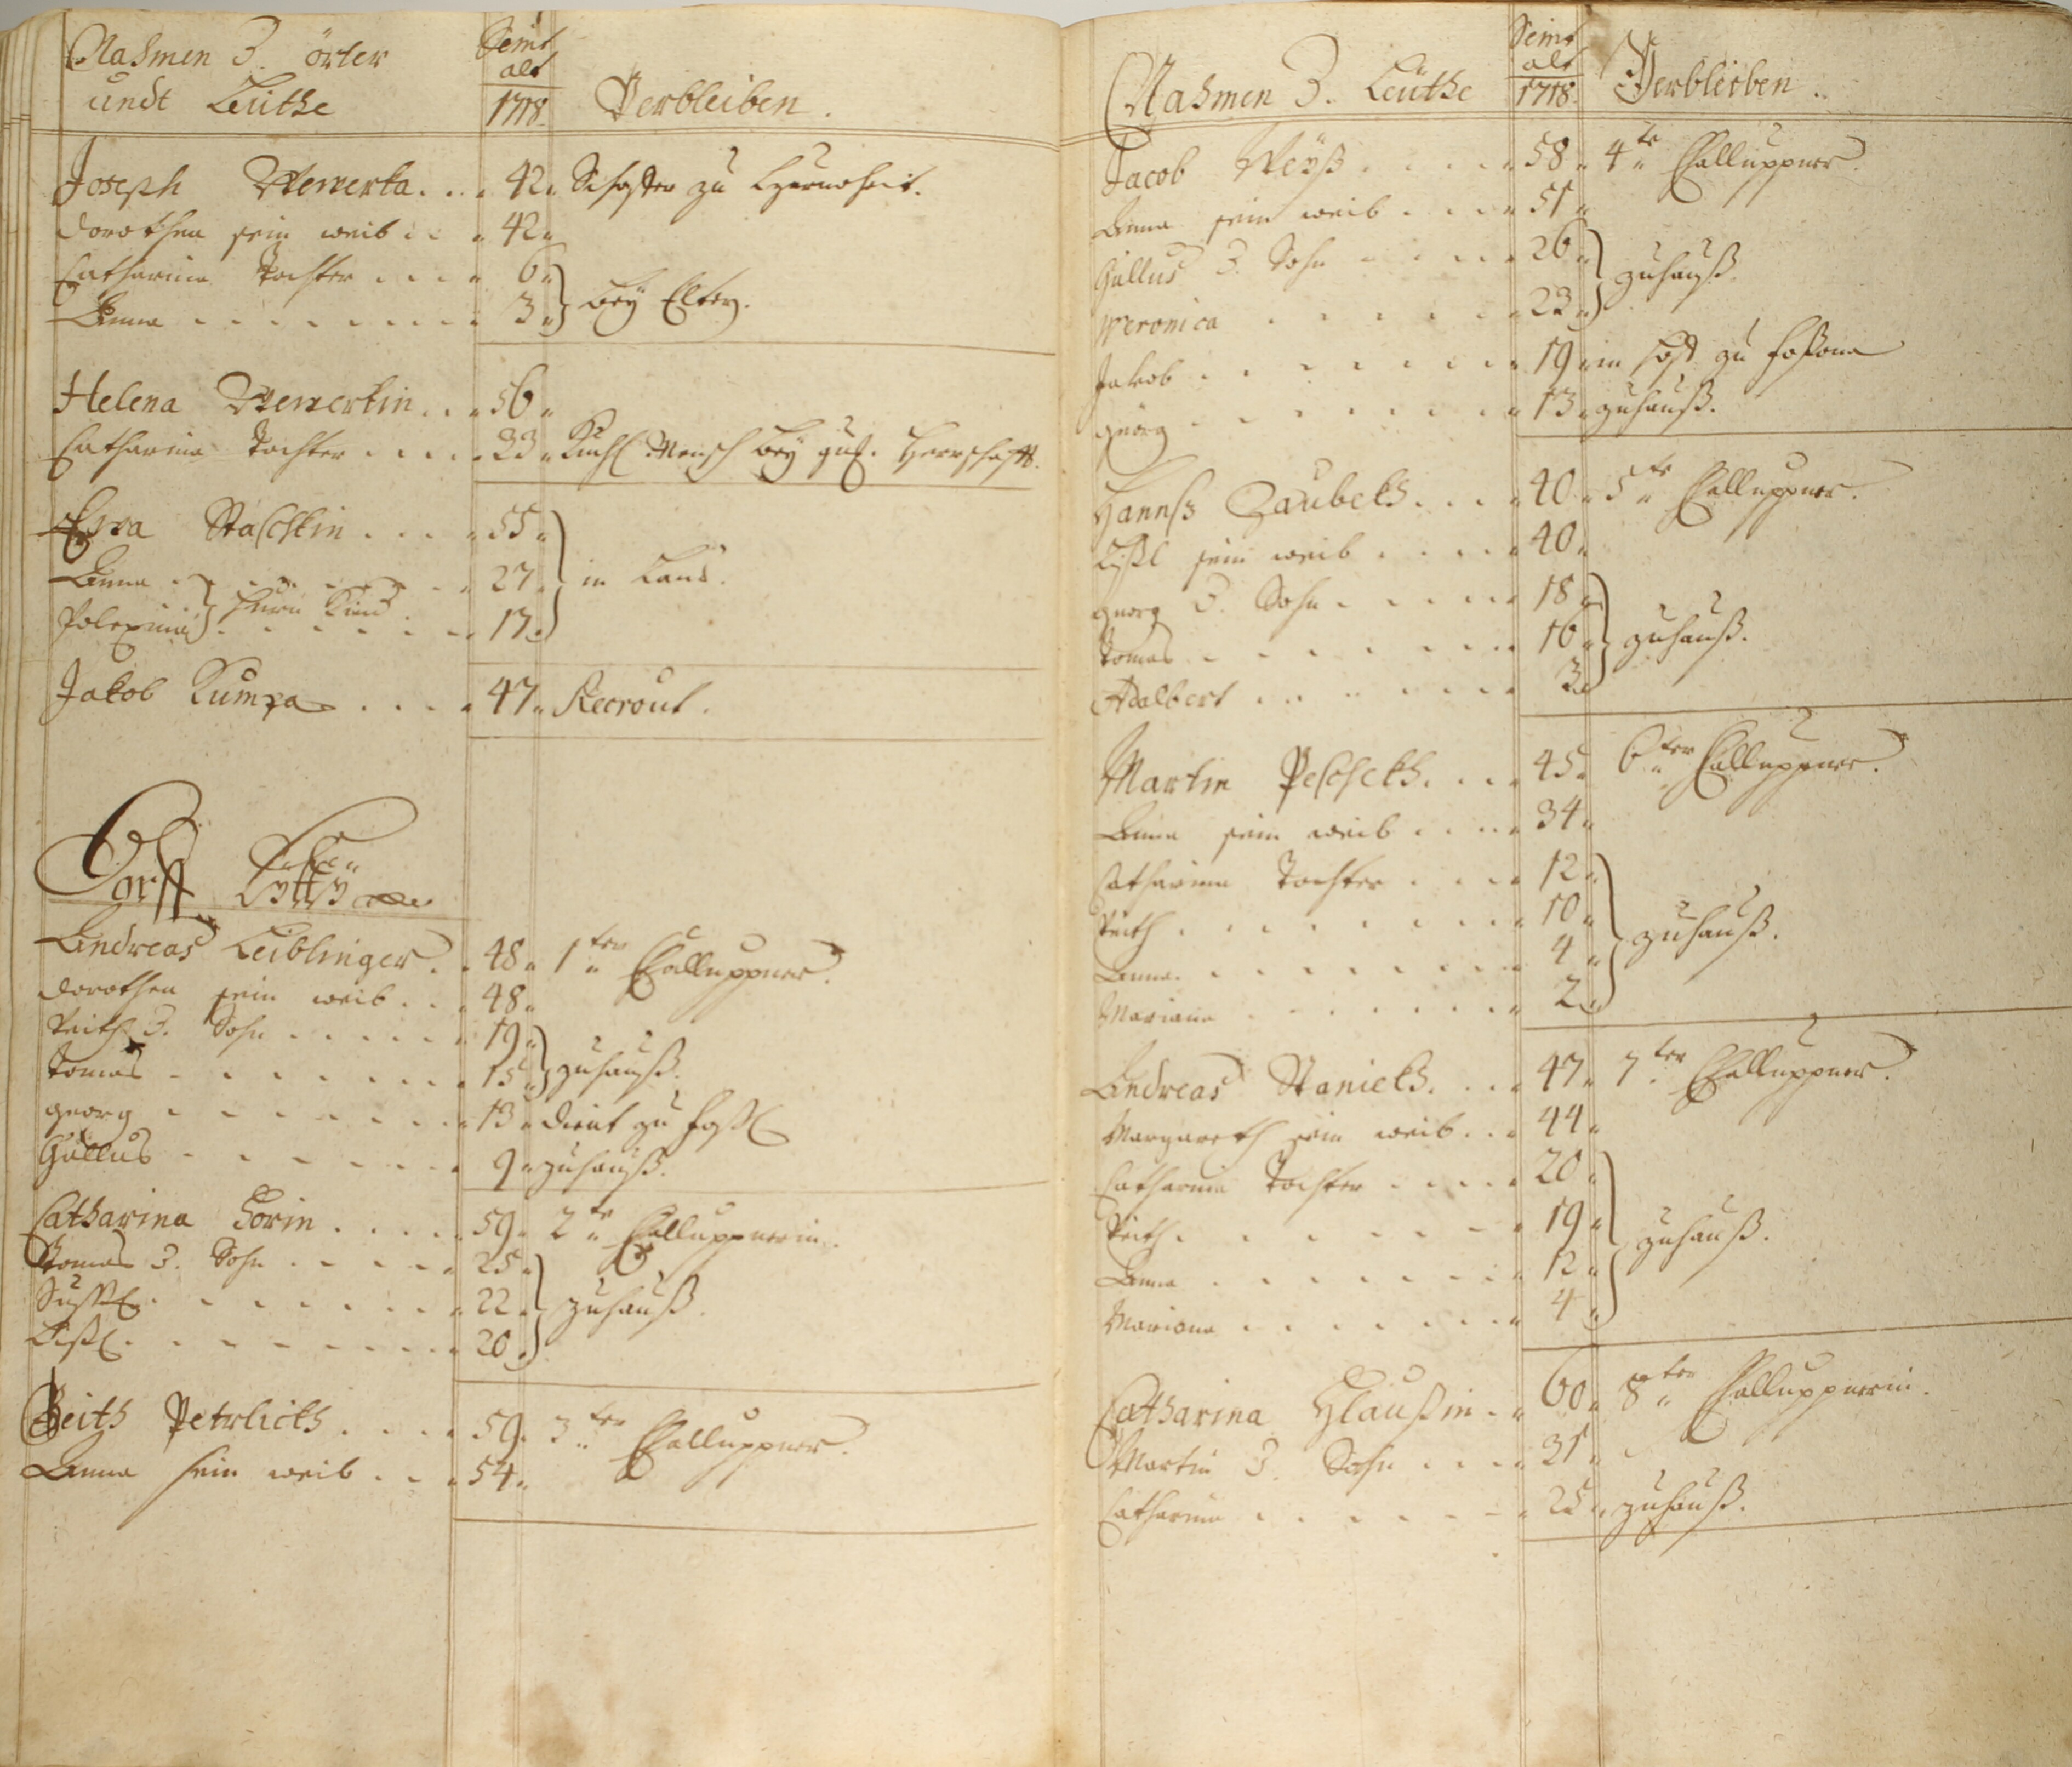 Nahmen d. örter
undt Leüthe
Seint
alt
1718
Verbleiben.
Joseph Wewerka . . . 42.
dorothea sein weib . . . 42.
Catharina Tochter . . . . 6.
Anna . . . . . . . . 3. bey Eltern.
Helena Wewerkin . . . 56.
Catharina Tochter . . . . 23. Kuchl Mensch bey gnd. Herrschafft.
Eva Staschkin . . . . 55.
Anna . . . . . . . 27. in Land.
ihre Kind
Polexina . . . . . . 17.
Jakob Kumpa . . . . 47. Recrout.
Dorff
Andreas Leiblinger . . 48. 1ter Calluppner.
dorothea sein weib . . . 48.
Veith d. Sohn . . . . . 19.
Tomas . . . . . . . 15. zuhauß.
georg . . . . . . . 13. dient zu
Gallus . . . . . . . 9. zuhauß.
Catharina Horin . . . . 59. 2te Calluppnerin.
Tomas d. Sohn . . . . . 25.
. . . . . . . . 22. zuhauß.
Lißl . . . . . . . . 20.
Veith Petrlickh . . . . 59. 3ter Calluppner.
Anna sein weib . . . 54.
Nahmen d. Leüthe
Seint
alt
1718.
Verbleiben.
Jacob Weyß . . . . 58. 4te Calluppner.
Anna sein weib . . . . 51.
Gallus d. Sohn . . . . . 26. zuhauß.
Weronica . . . . . . 23.
Jakob . . . . . . . 19. im
georg . . . . . . . 13. zuhauß.
Hannß Zaubekh . . . . 40. 5te Calluppner.
Lißl sein weib . . . . 40.
georg d. Sohn . . . . . 18.
Tomas . . . . . . . 16. zuhauß.
Adalbert . . . . . . 3.
Martin Peschekh . . . . 45. 6ter Calluppner.
Anna sein weib . . . . 34.
Catharina Tochter . . . . 12.
Veith . . . . . . . . 10. zuhauß.
Anna . . . . . . . . 4.
Mariana . . . . . . . 2.
Andreas Staniekh . . . . 47. 7ter Calluppner.
Margareth sein weib . . . 44.
Catharina Tochter . . . . 20.
Veith . . . . . . . 19. zuhauß.
Anna . . . . . . . 12.
Mariana . . . . . . . 4.
Catharina Hlaußin . . 60. 8ter Calluppnerin.
Martin d. Sohn . . . . 31.
Catharina . . . . . . 25. zuhauß.